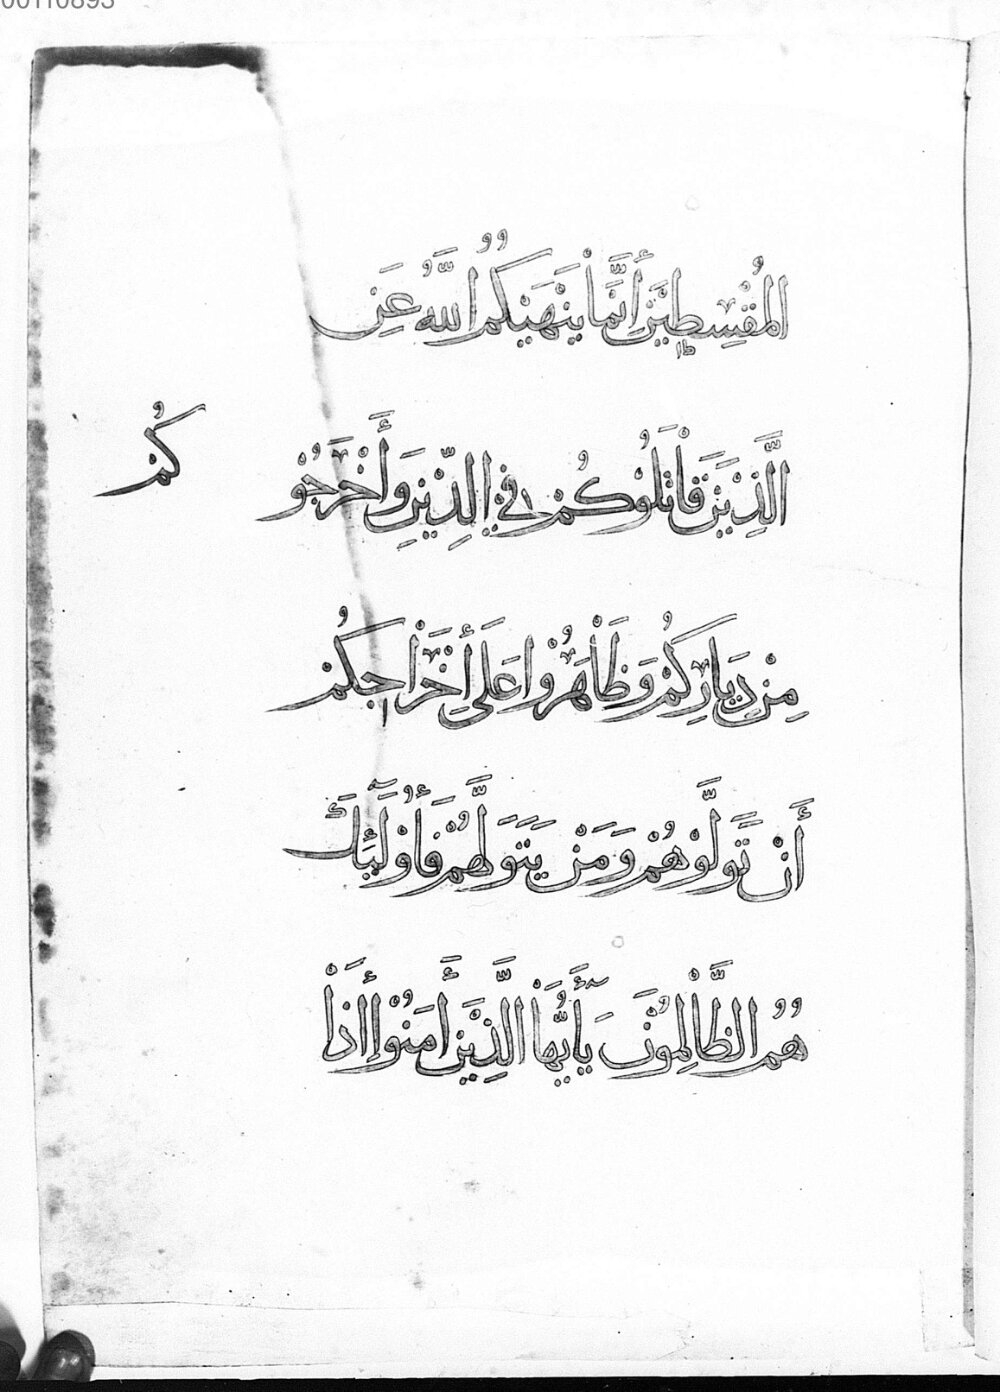 00110893
الْمُقْسِطِيْنَ إِنَّمَاْ يَنْهَىٰكُمُ اللَّهُ عَنِ
الَّذِيْنَ قَاْتَلُوْكُمْ فِي الدِّيْنِ وَأَخْرَجُوْ
كُمْ
مِنْ دِيَارِكُمْ وَظَاْهَرُوْا عَلَى إِخْرَاْجِكُمْ
أَنْ تَوَلَّوْهُمْ وَمَنْ يَتَوَلَّهُمْ فَأُوْلَٰٓئِكَ
هُمُ الظَّاْلِمُوْنَ يَٰٓأَيُّهَاْ الَّذِيْنَ أَمَنُوْا إِذَاْ